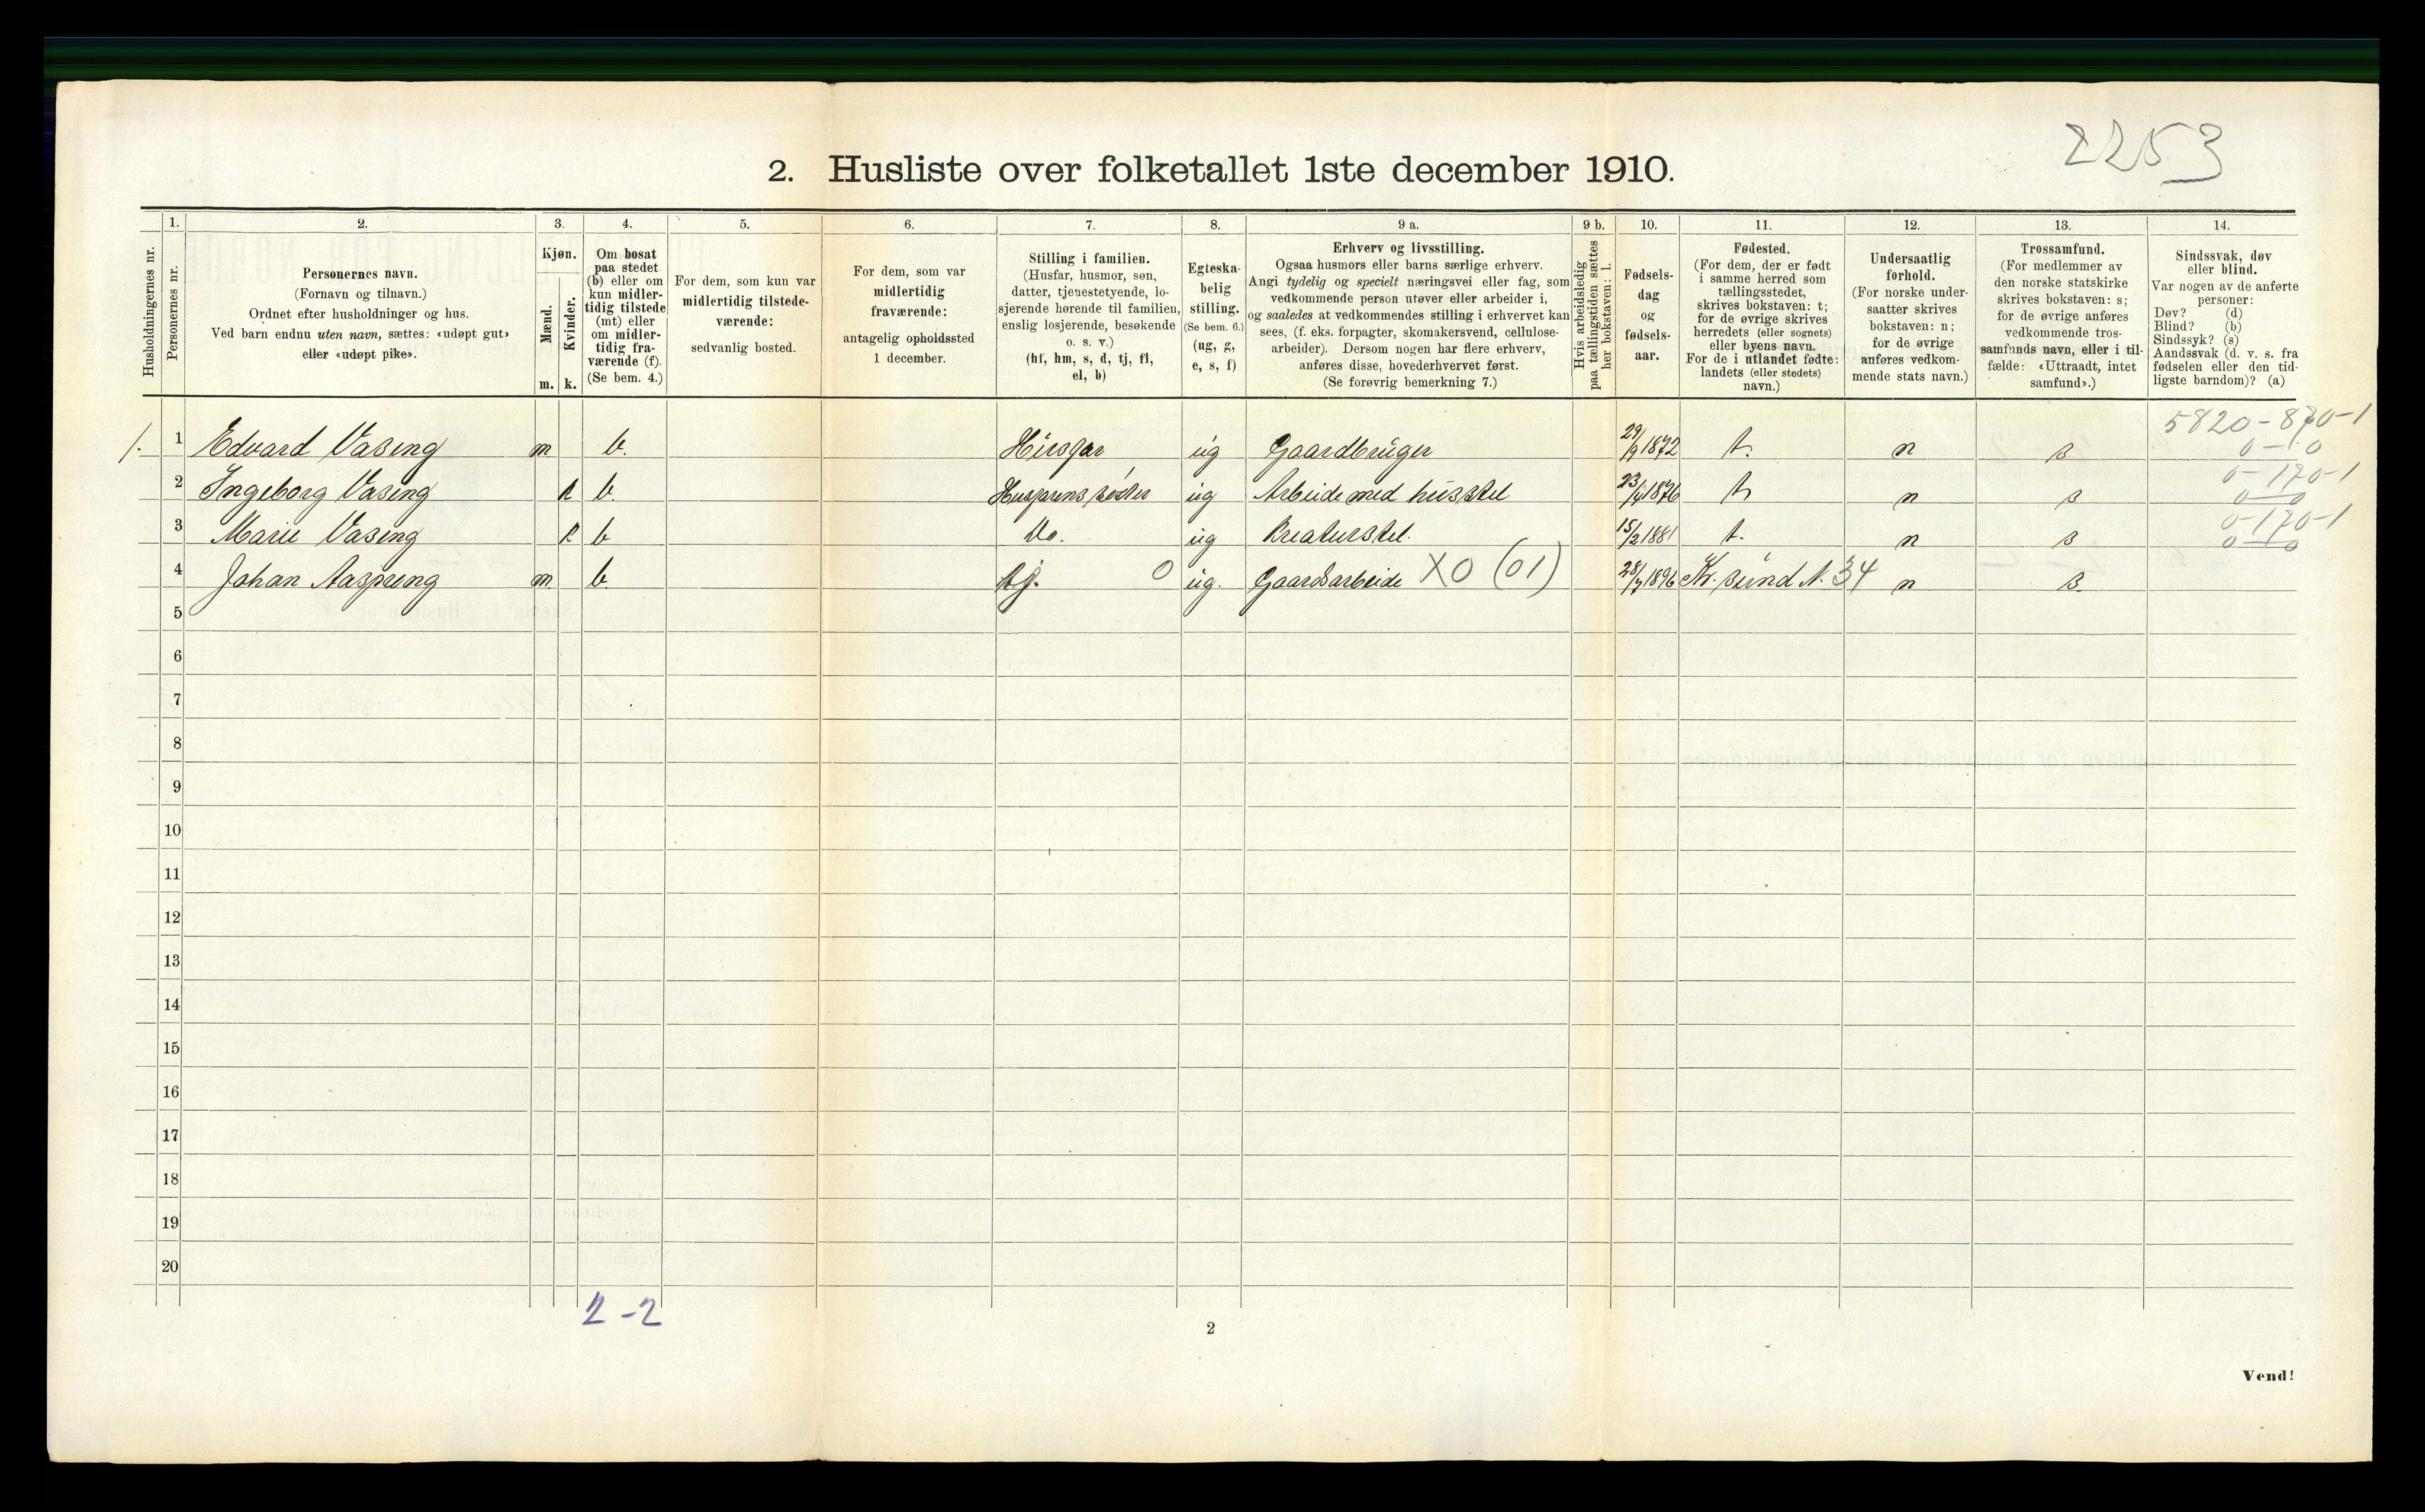 2253
2. Husliste over folketallet 1ste december 1910.
Husholdningernes nr.
1. Personernes nr.
2. Personernes navn. (Fornavn og tilnavn.) Ordnet efter husholdninger og hus. Ved barn endnu uten navn, sættes: «udøpt gut» eller «udøpt pike».
3. Kjøn. Mænd. m. Kvinder. k.
4. Om bosat paa stedet (b) eller om kun midlertidig tilstede (mt) eller om midlertidig fraværende (f). (Se bem. 4.)
5. For dem, som kun var midlertidig tilstedeværende: sedvanlig bosted.
6. For dem, som var midlertidig fraværende: antagelig opholdssted 1 december.
7. Stilling i familien. (Husfar, husmor, søn, datter, tjenestetyende, losjerende hørende til familien, enslig losjerende, besøkende o. s. v.) (hf, hm, s, d, tj, fl, el, b)
8. Egteskabelig stilling. (Se bem. 6.) (ug, g, e, s, f)
9 a. Erhverv og livsstilling. Ogsaa husmors eller barns særlige erhverv. Angi tydelig og specielt næringsvei eller fag, som vedkommende person utøver eller arbeider i, og saaledes at vedkommendes stilling i erhvervet kan sees, (f. eks. forpagter, skomakersvend, cellulosearbeider). Dersom nogen har flere erhverv, anføres disse, hovederhvervet først. (Se forøvrig bemerkning 7.)
9 b. Hvis arbeidsledig paa tællingstiden sættes her bokstaven: l.
10. Fødselsdag og fødselsaar.
11. Fødested. (For dem, der er født i samme herred som tællingsstedet, skrives bokstaven: t; for de øvrige skrives herredets (eller sognets) eller byens navn. For de i utlandet fødte: landets (eller stedets) navn.)
12. Undersaatlig forhold. (For norske undersaatter skrives bokstaven: n; for de øvrige anføres vedkommende stats navn.)
13. Trossamfund. (For medlemmer av den norske statskirke skrives bokstaven: s; for de øvrige anføres vedkommende trossamfunds navn, eller i tilfælde: «Uttraadt, intet samfund».)
14. Sindssvak, døv eller blind. Var nogen av de anførte personer: Døv? (d) Blind? (b) Sindssyk? (s) Aandssvak (d. v. s. fra fødselen eller den tidligste barndom)? (a)
5820-870-1
1. 1 Edvard Vaseng m b. Husfar ug Gaardbruger 29/9 1872 t. n s 0-10
0-170-1
2 Ingeborg Vaseng k b. Husfarens søster ug Arbeide med husstel 23/4 1876 t n s 0-0
0-170-1
3 Marie Vaseng k b Do. ug Kreaturstel. 15/2 1881 t. n s 0-0
4 Johan Aaspreng m. b. tj. 0 ug. Gaardsarbeide X0 (01) 28/7 1896 Kr. sund N. 34 n s.
5
6
7
8
9
10
11
12
13
14
15
16
17
18
19
20
2-2
2
Vend!